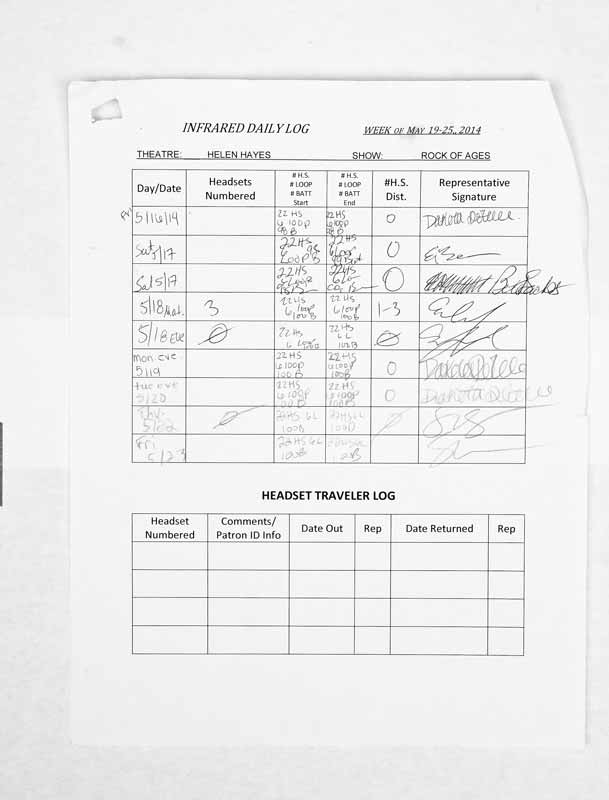 INFRARED DAILY LOG WEEK OF MAY 19-25, 2014
THEATRE: HELEN HAYES SHOW: ROCK OF AGES
Day/Date Headsets Numbered # H.S. # LOOP # BATT Start # H.S. # LOOP # BATT End #H.S. Dist. Representative Signature
Fri 5/16/14 22 HS 6 loop 98 B 22 HS 6 loop 98 B 0 Dakota
Sat 5/17 22 HS 6 98 Loop B 22 HS 6 loop 0
Sat 5/17 22 HS 22 HS 0
5/18 Mat. 3 22 HS 6 loop 100 B 22 HS 6 loop 100 B 1-3
5/18 Eve Ø 22 HS 6 L 22 HS 6 L 100 B Ø
mon eve 5/19 22 HS 6 loop 100 B 22 HS 6 loop 100 B 0 Dakota
tue eve 5/20 22 HS 6 loop 100 B 22 HS 6 loop 100 B 0 Dakota
Thu. 5/22 Ø 22 HS 6L 100B 22 HS 6L 100B Ø
Fri 5/23 22 HS 6L 100B 22 HS 6L 100B
HEADSET TRAVELER LOG
Headset Numbered Comments/ Patron ID Info Date Out Rep Date Returned Rep